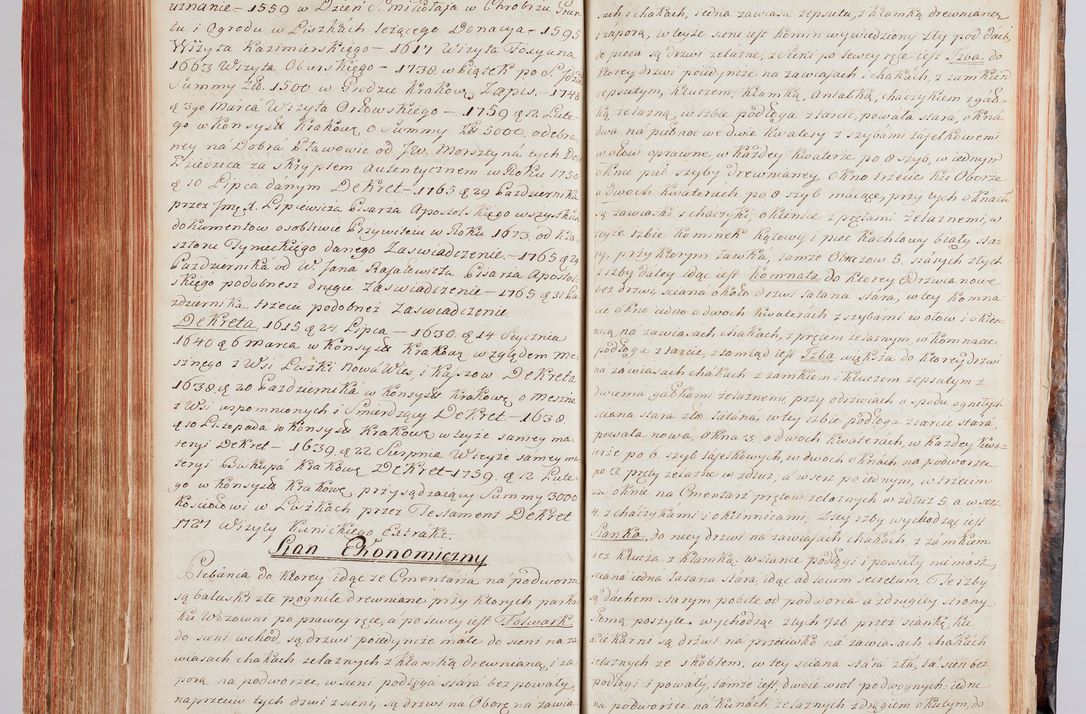 uznanie – 1559 w Dzień S. mikołaja w Chrobrzu Grun-
tu i Ogrodu w Liszkach leżącego Donacya – 1595
Wizyta Kazimierskiego – 1617 Wizyta Foxyana
1663 Wizyta Oburskiego – 1738. w Piątek po S.
Summy Zł. 1500. w Grodzie Krakow: Zapis – 1748
d. 3go Marca Wizyta Orłowskiego – 1759 d. 12 Lute-
go w Konsyst: Krakow: o Summy Zł 5000. odebra-
ney na Dobra od Jw. Morsztyna tych Dóbr
Dziedzica za skryptem autentycznem w Roku 1750
d. 10 Lipca danym Dekret – 1765 d. 29 Października
przez Jmci X. Lipiewicza Pisarza Apostolskiego wszystkich
dokumentow osobliwie Przywileiu w Roku 1673. od Kla-
sztoru Tynieckiego danego Zaswiadczenie – 1765 d. 29
Października od W. Jana Rafalewicza Pisarza Apostol-
skiego podobnesz drugie Zaswiadczenie – 1765 d. 31 Pa-
ździernika trzecie podobnesz Zaswiadczenie
Dekreta 1615 d. 24. Lipca – 1630. d. 14 Stycznia
1640 d. 6 marca w Konsyst: Krakow: względem me-
sznego z Wsi Liszki Nowa Wies, i Kaszow Dekreta
1638. d. 20 Października w Konsyst: Krakow: o Meszne
z Wsi wspomnionych i Smierdzący Dekret – 1638.
d. 10 Listopada w Konsyst: Krakow: w teyże samey ma-
teryi Dekret – 1639. d. 22 Sierpnia W teyże samey ma-
teryi Biskupa Krakow: Dekret – 1759. d. 12 Lute-
go w Konsyst: Krakow: przysądzaiący Summy 3000
Kosciołowi w Liszkach przez Testament Dekret
1727 Wizyty Kunickiego Extrakt.
Stan Ekonomiczny
Plebania do ktorey idąc ze Cmentarza na podworza
są balaski złe pogniłe drewniane przy ktorych parka-
nie Wozowni po prawey ręce, a po lewey iest Folwark
do sieni wchod są drzwi poiedyncze małe do sieni na za-
wiasach i hakach żelaznych z klamką drewnianą, i za-
porą na podworzec, w sieni podłoga stara bez powały
naprzeciw tych drzwi z sieni, są drzwi na Oborę na zawia-
sach i hakach, iedna zawiasa zepsuta, z klamką drewnianą
i zaporą, w teyże sieni iest komin wywiedziony zły pod dach,
do pieca są drzwi żelazne, z Sieni po lewey ręce iest Izba do
ktorey drzwi poiedyncze na zawiasach i hakach, z zamkiem
zepsutym, kluczem, klamką, antabką, haczykiem z gał-
ką żelazną, w Izbie podłoga z tarcic, powała stara, okna
dwa na puł nocne dwie kwatery z szybami taflkowemi
w ołow oprawne, w każdey kwaterze po 8 szyb, w iednym
oknie puł szyby drewnianey. Okno trzecie ku Oborze
o dwoch kwaterach po 8 szyb maiące, przy tych oknach
są zawiaski i haczyki, okienice z prętami żelaznemi, w
teyże Izbie kominek kątowy i piec kachlowy biały sta-
ry, przy ktorym ławka, tamże Obrazow 5. starych złych
z Izby daley idąc iest Komnata do ktorey Odrzwia nowe
bez drzwi, sciana około drzwi łatana stara, w tey komna-
cie Okno iedno o dwoch kwaterach z szybami w ołow i okien-
nicą na zawiasach i hakach, z prętem żelaznym, w komnacie
podłoga z tarcic, z tamtąd iest Izba większa do ktorey drzwi
na zawiasach i hakach z zamkiem i kluczem zepsutym z
dwiema gałkami żelaznemi, przy odrzwiach u spodu zgniłych
sciana stara zła łatana, w tey Izbie podłoga z tarcic stara
powała nowa, Okna 3. o dwoch kwaterach, w każdey kwa-
terze po 6. szyb taflkowych, w dwoch oknach na podworzec
po 2 pręty żelazne w zdłuż, a w szerz po iednym, w trzecim
zaś oknie na Cmentarz prętow żelaznych w zdłuż 5. a w szerz
4. z haczykami i okiennicami, z tey Izby wychodząc iest
Sianka, do niey drzwi na zawiasach i hakach z zamkiem
bez klucza, z klamką, w sianie podłogi i powały niemasz,
sciana iedna łatana stara, idąc ad locum secretum. Te izby
są dachem starym pobite od podworza a z drugiey strony
słomą poszyte wychodząc z tych Izb przez siankę ku
Piekarni są drzwi na przeciwko na zawiasach i hakach
żelaznych ze skoblem, w tey sciana stara zła, ta sien bez
podłogi i powały, tamże iest, dwoie wrot podwoynych iedne
na podworzec na kunach żelaznych z drągiem okutym, do